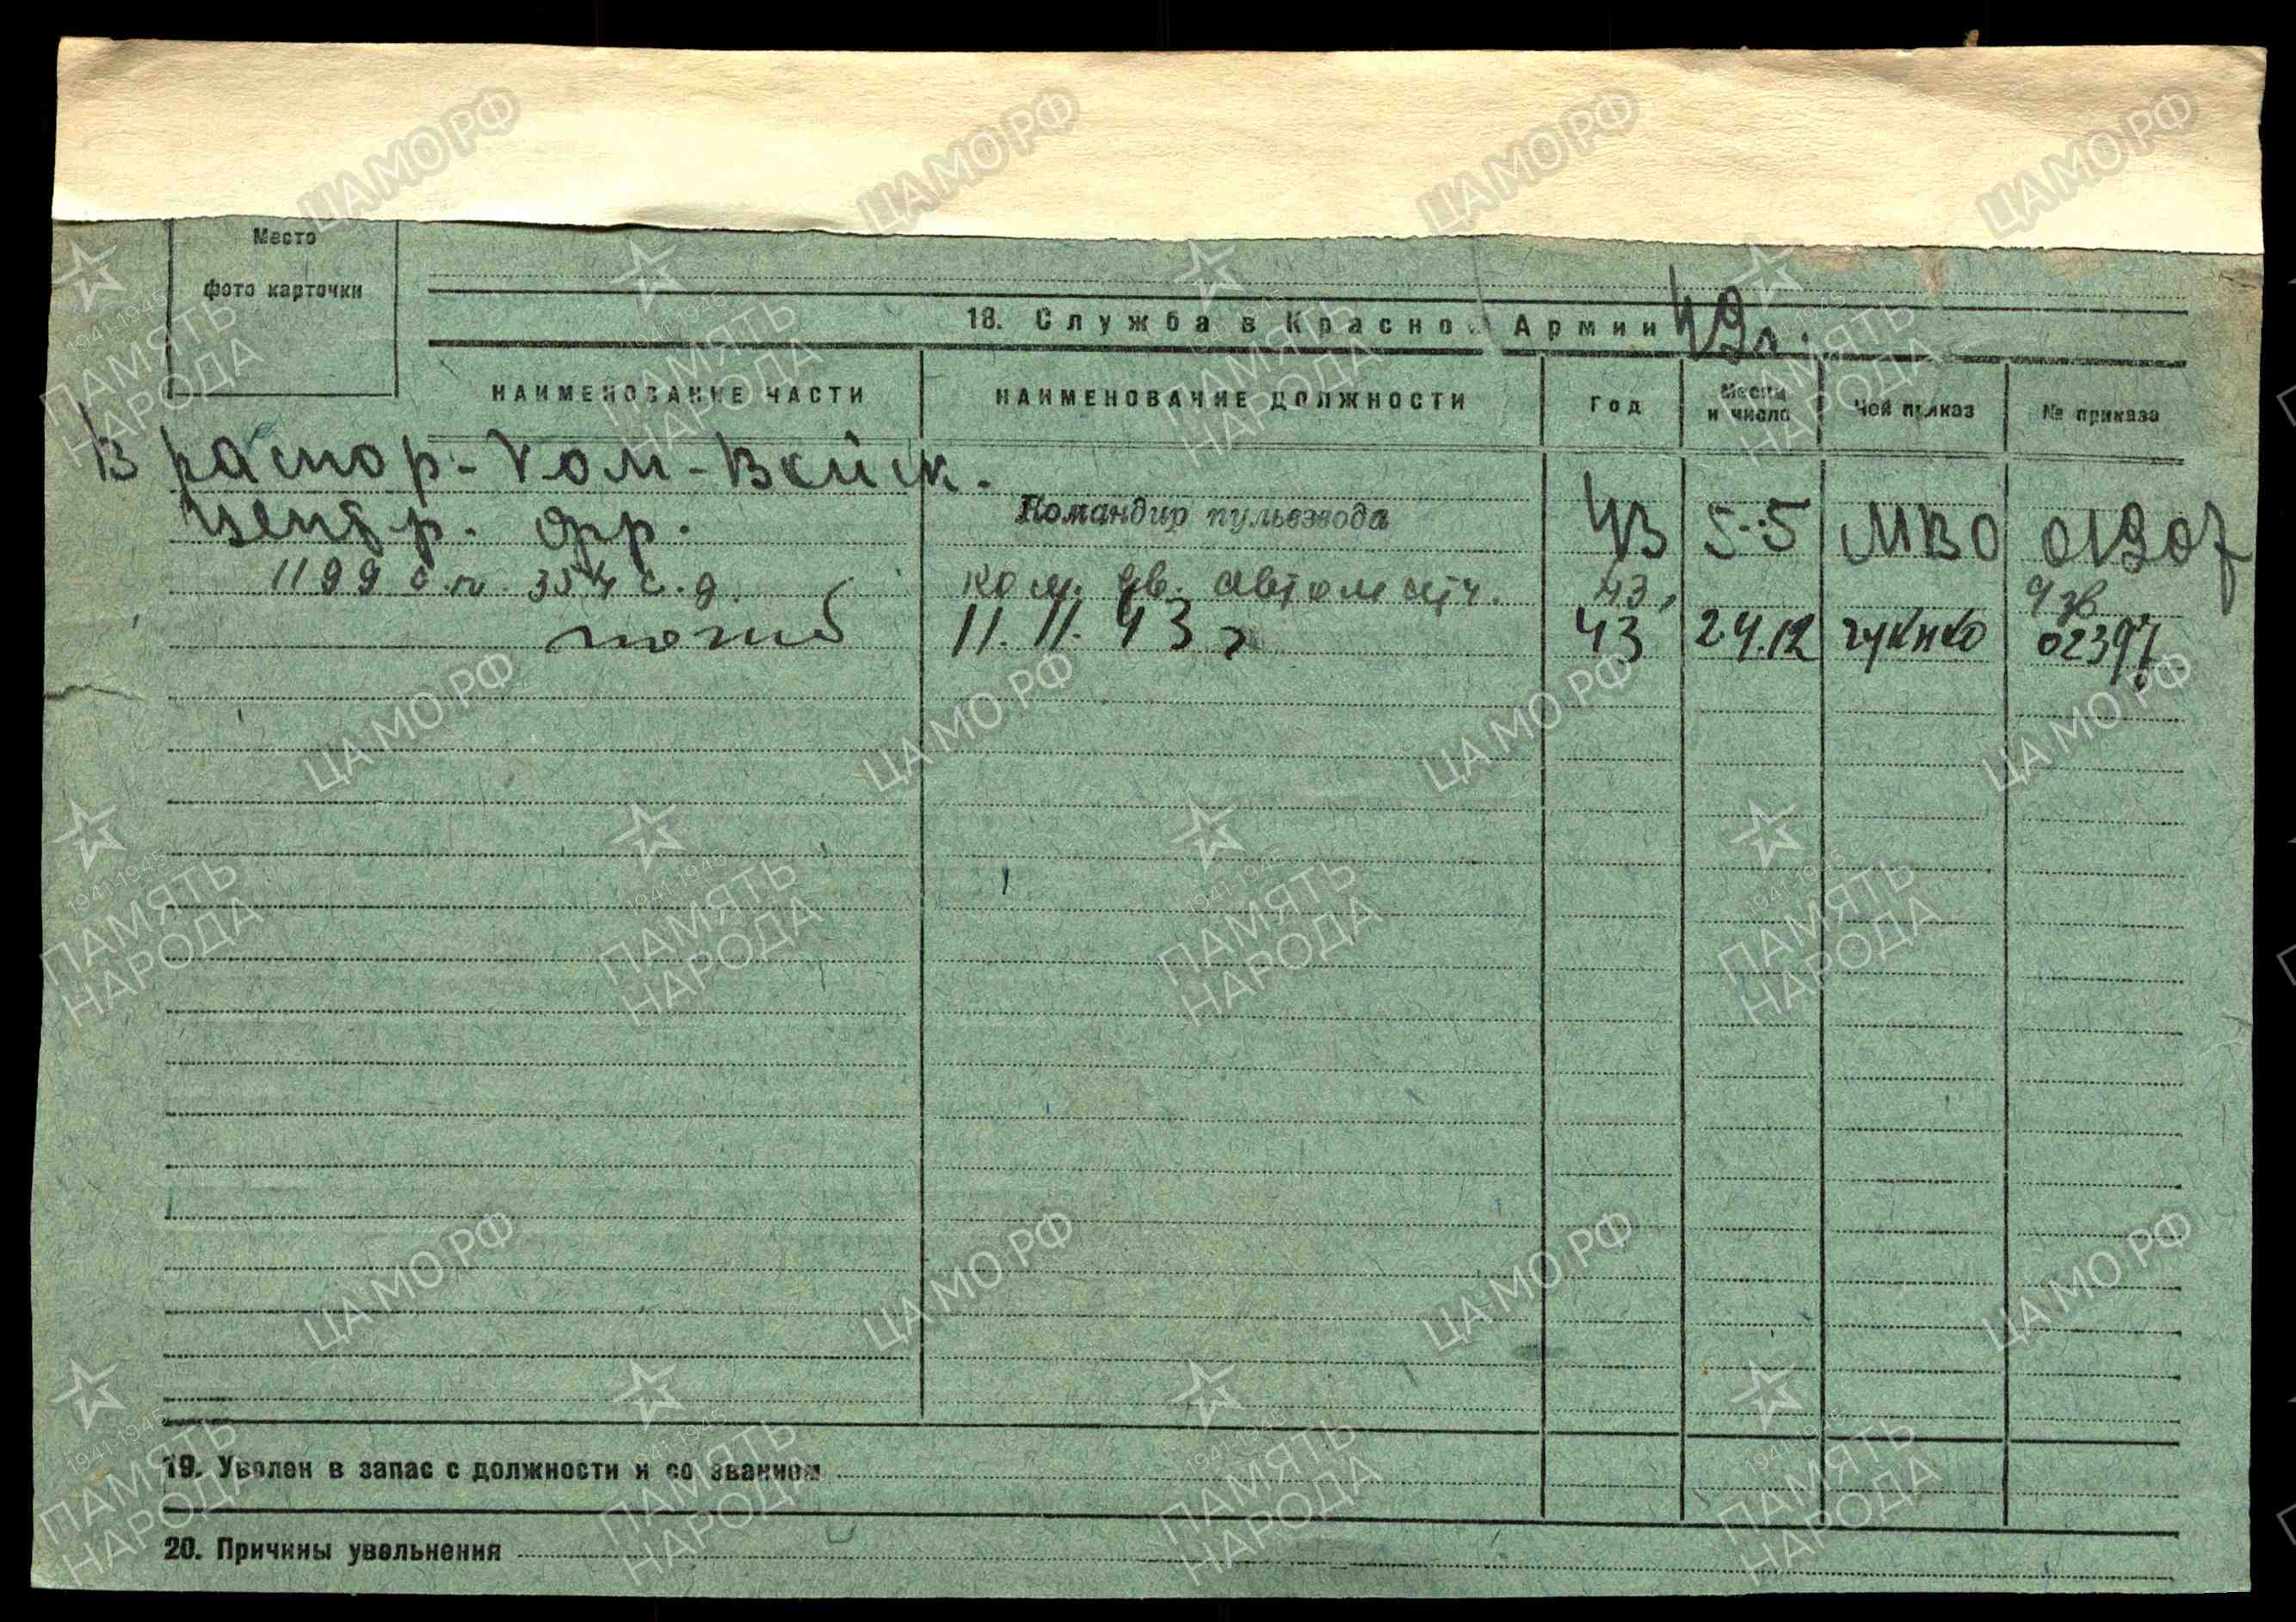 Место
фото карточки
18. Служба в Красной Армии 42г.
НАИМЕНОВАНИЕ ЧАСТИ НАИМЕНОВАНИЕ ДОЛЖНОСТИ Год Месяц и число Чей приказ № приказа
В распор-Ком-Войск.
центр. фр. Командир пульвзвода 43 5-5 МВО 01207
1199 с.п. 354 с.д. ком. вв. автоматч. 43,
погиб 11.11.43 г 43 24.12 гукнко 02397
19. Уволен в запас с должности и со званием
20. Причины увольнения
ЦАМО РФ
1941-1945
ПАМЯТЬ
НАРОДА